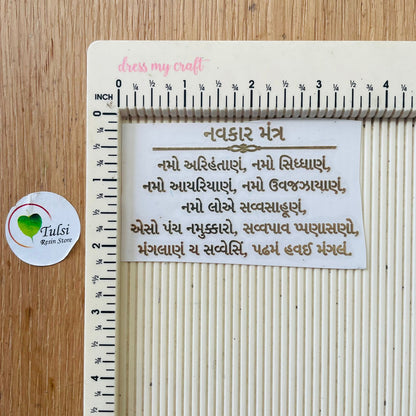 dress my craft
INCH 0 ¼ ½ ¾ 1 ¼ ½ ¾ 2 ¼ ½ ¾ 3 ¼ ½ ¾ 4 ¼
0 ¼ ½ ¾ 1 ¼ ½ ¾ 2 ¼ ½ ¾ 3 ¼ ½ ¾ 4 ¼ ½
નવકાર મંત્ર
નમો અરિહંતાણં, નમો સિધ્ધાણં,
નમો આયરિયાણં, નમો ઉવજઝાયાણં,
નમો લોએ સવ્વસાહૂણં,
એસો પંચ નમુક્કારો, સવ્વપાવ પ્પણાસણો,
મંગલાણં ચ સવ્વેસિં, પઢમં હવઈ મંગલં.
Tulsi
Resin Store